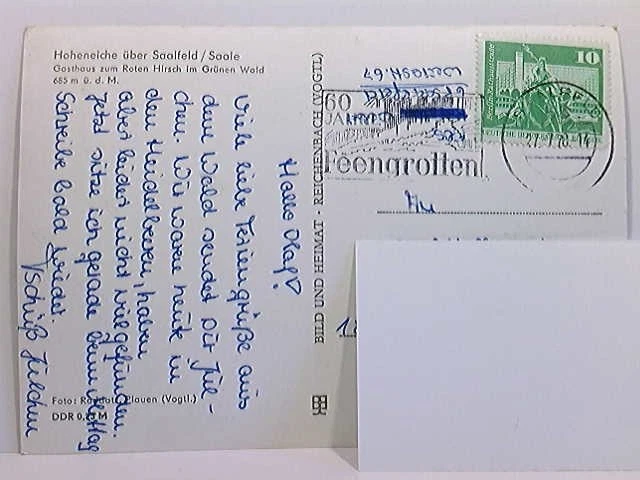 Hoheneiche über Saalfeld/Saale
Gasthaus zum Roten Hirsch im Grünen Wald
685 m ü. d. M.
Hallo Olaf!
Viele liebe Feriengrüße aus
dem Wald sendet Dir Jul-
chen. Wir waren heute in
den Heidelbeeren, haben
aber leider nicht viel gefunden.
Jetzt sitze ich gerade beim Mittag
Schreibe bald wieder.
Tschüß Julchen
Foto: Plauen (Vogtl.)
DDR 0,25 M
BILD UND HEIMAT · REICHENBACH (VOGTL)
60
JAHRE
Feengrotten
10
An